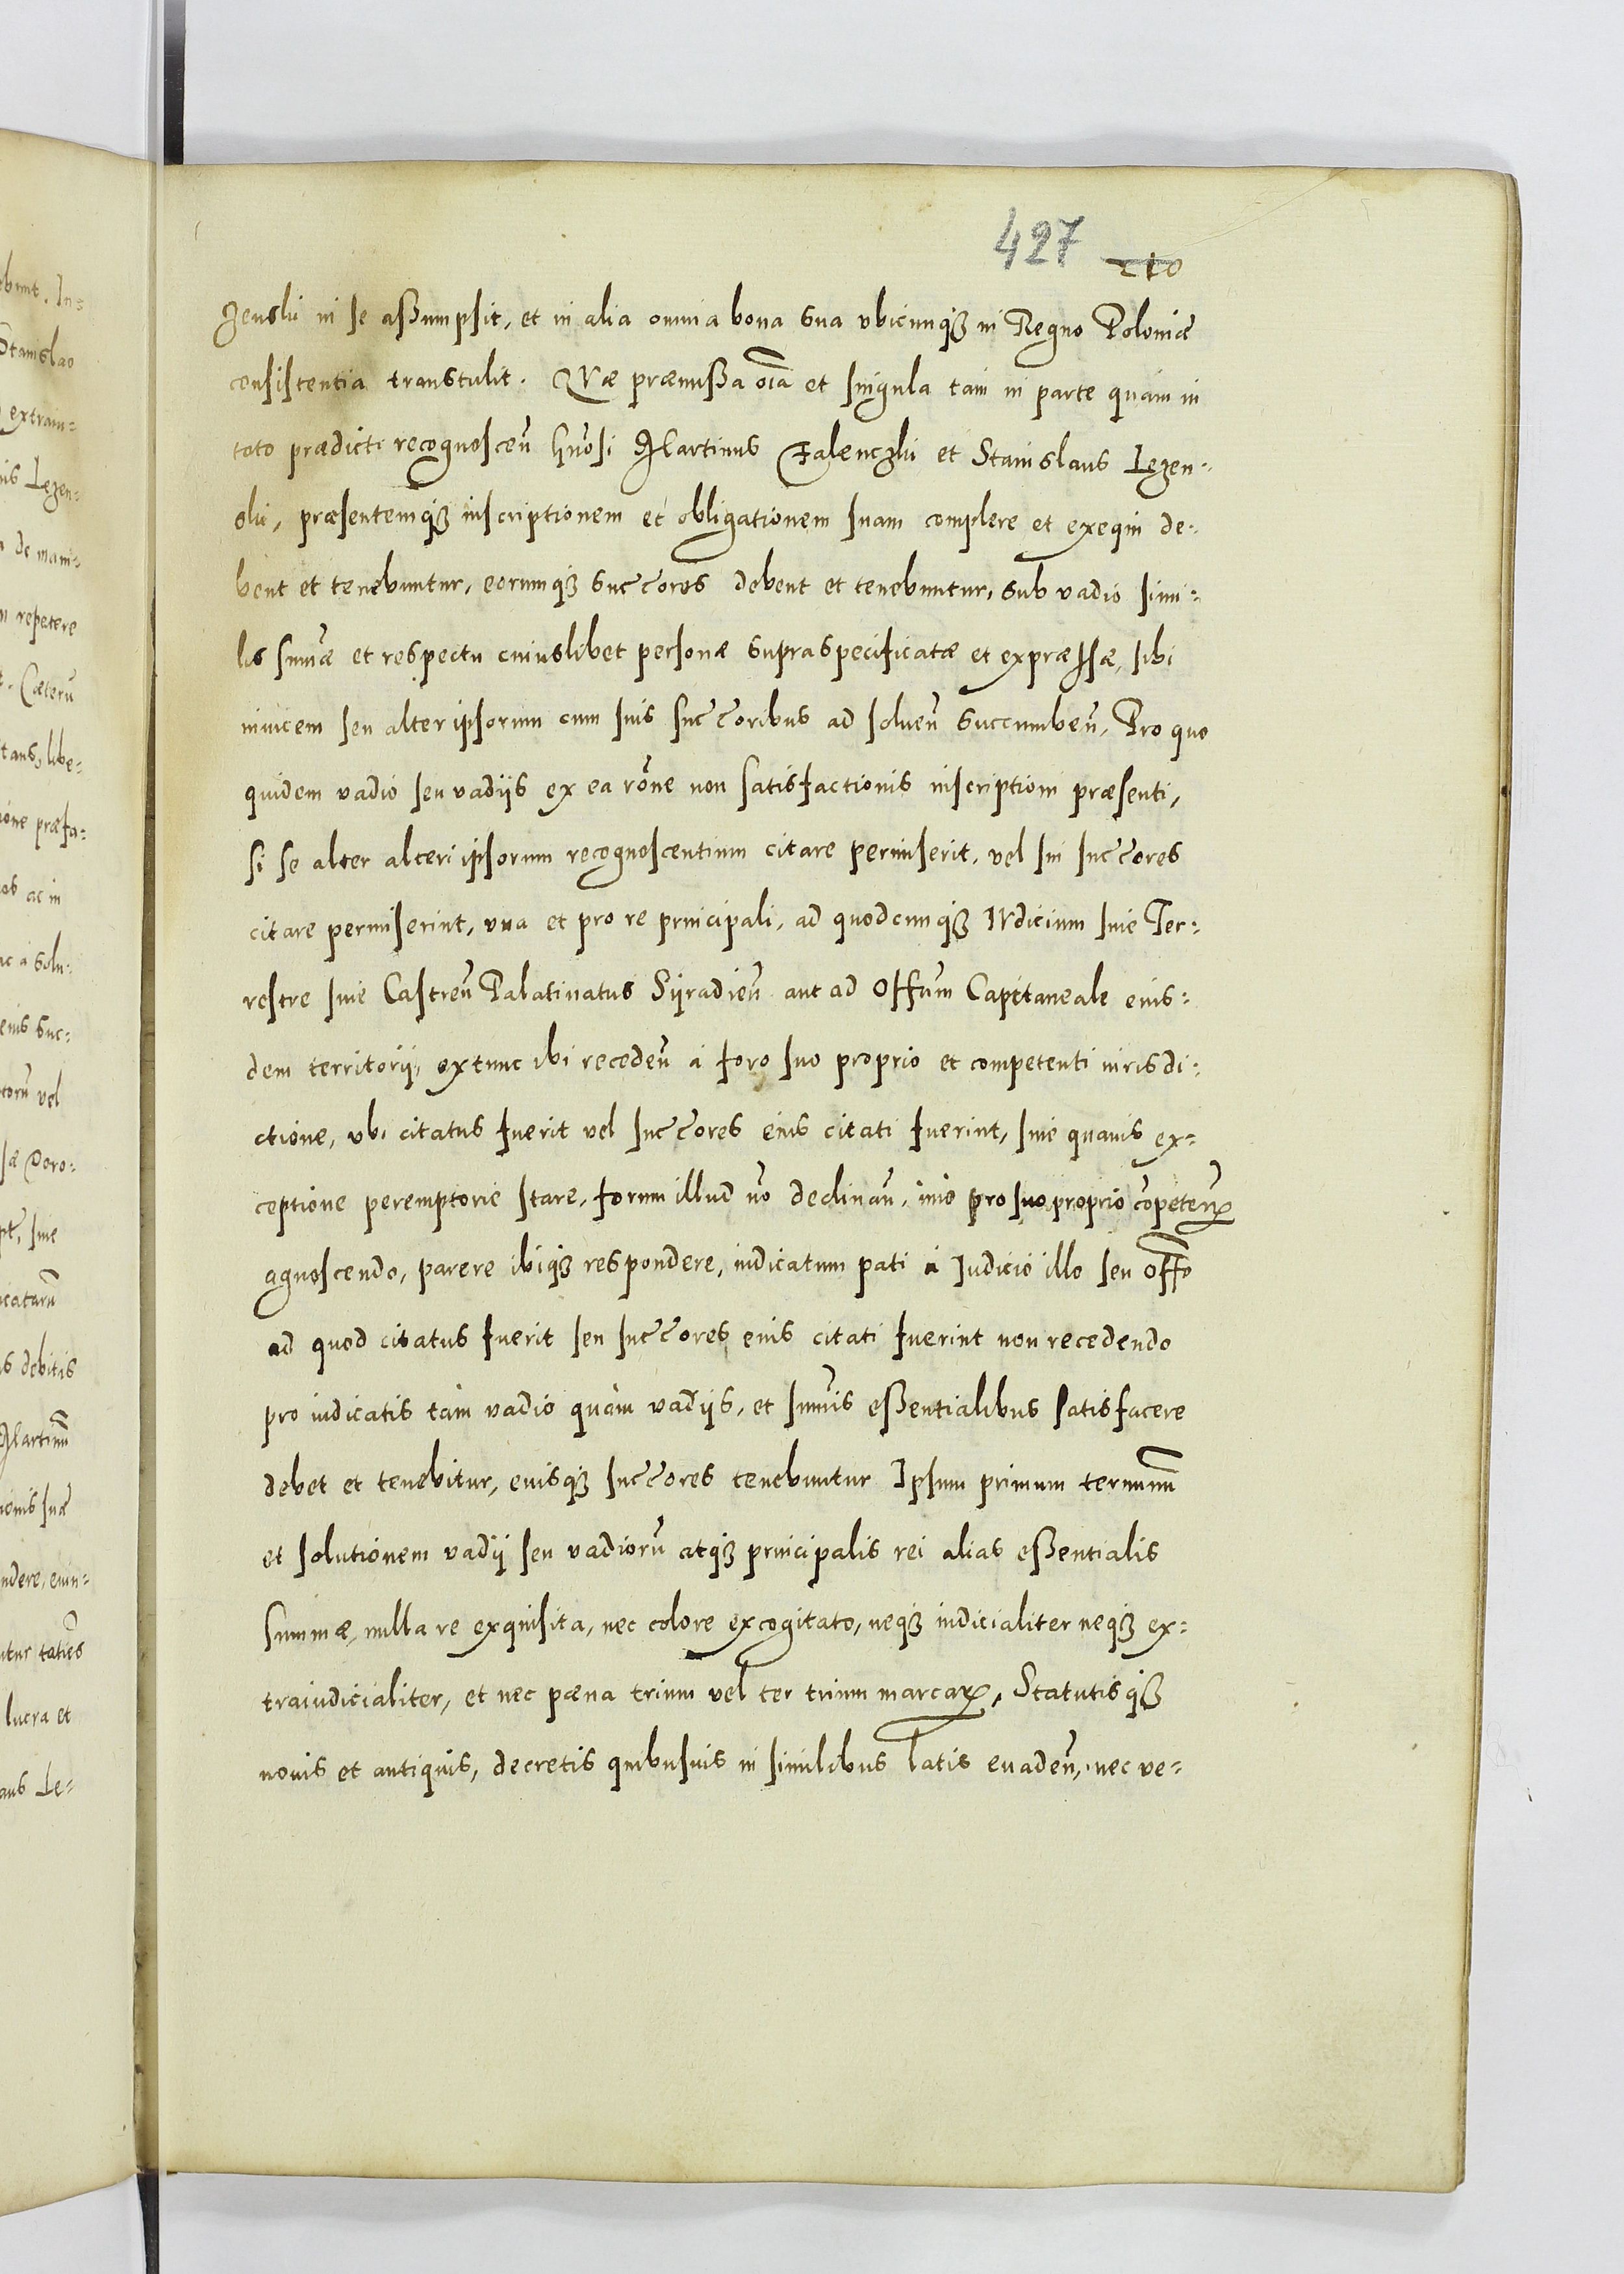 427 210
zenski in se assumpsit, et in alia omnia bona sua vbicunqȝ in Regno Poloniæ
consistentia transtulit. Quæ præmissa oĩa et singula tam in parte quam in
toto prædicti recognosceñ Gñosi Martinus Zalenczki et Stanislaus Lezen-
ski, præsentemqȝ inscriptionem et obligationem suam complere et exequi de-
bent et tenebuntur, eorumqȝ succ̃ores debent et tenebuntur, sub vadio simi-
lis sum̃æ et respectu cuiuslibet personæ supraspecificatæ et expræssæ, sibi
inuicem seu alter ipsorum cum suis succ̃oribus ad solueñ succumbeñ, Pro quo
quidem vadio seu vadijs ex ea rõne non satisfactionis inscriptioni præsenti,
si se alter alteri ipsorum recognoscentium citare permiserit, vel sui succ̃ores
citare permiserint, vna et pro re principali, ad quodcunqȝ Iudicium siue Ter-
restre siue Castreñ Palatinatus Syradieñ aut ad Offũm Capitaneale eius-
dem territorij, extunc ibi recedeñ à foro suo proprio et competenti iurisdi-
ctione, vbi citatus fuerit vel succ̃ores eius citati fuerint, sine quauis ex-
ceptione peremptorie stare, forum illud ño declinañ, imo pro suo proprio cõpeteñ
agnoscendo, parere ibiqȝ respondere, iudicatum pati à Iudicio illo seu offõ
ad quod citatus fuerit seu succ̃ores eius citati fuerint non recedendo
pro iudicatis tàm vadio quàm vadijs, et sum̃is essentialibus satisfacere
debet et tenebitur, eiusqȝ succ̃ores tenebuntur Ipsum primum terminũ
et solutionem vadij seu vadiorũ atqȝ principalis rei alias essentialis
summæ, nulla re exquisita, nec colore excogitato, neqȝ iudicialiter neqȝ ex-
traiudicialiter, et nec pæna trium vel ter trium marcaꝝ, Statutisqȝ
nouis et antiquis, decretis quibusuis in similibus latis euadeñ, nec ve-